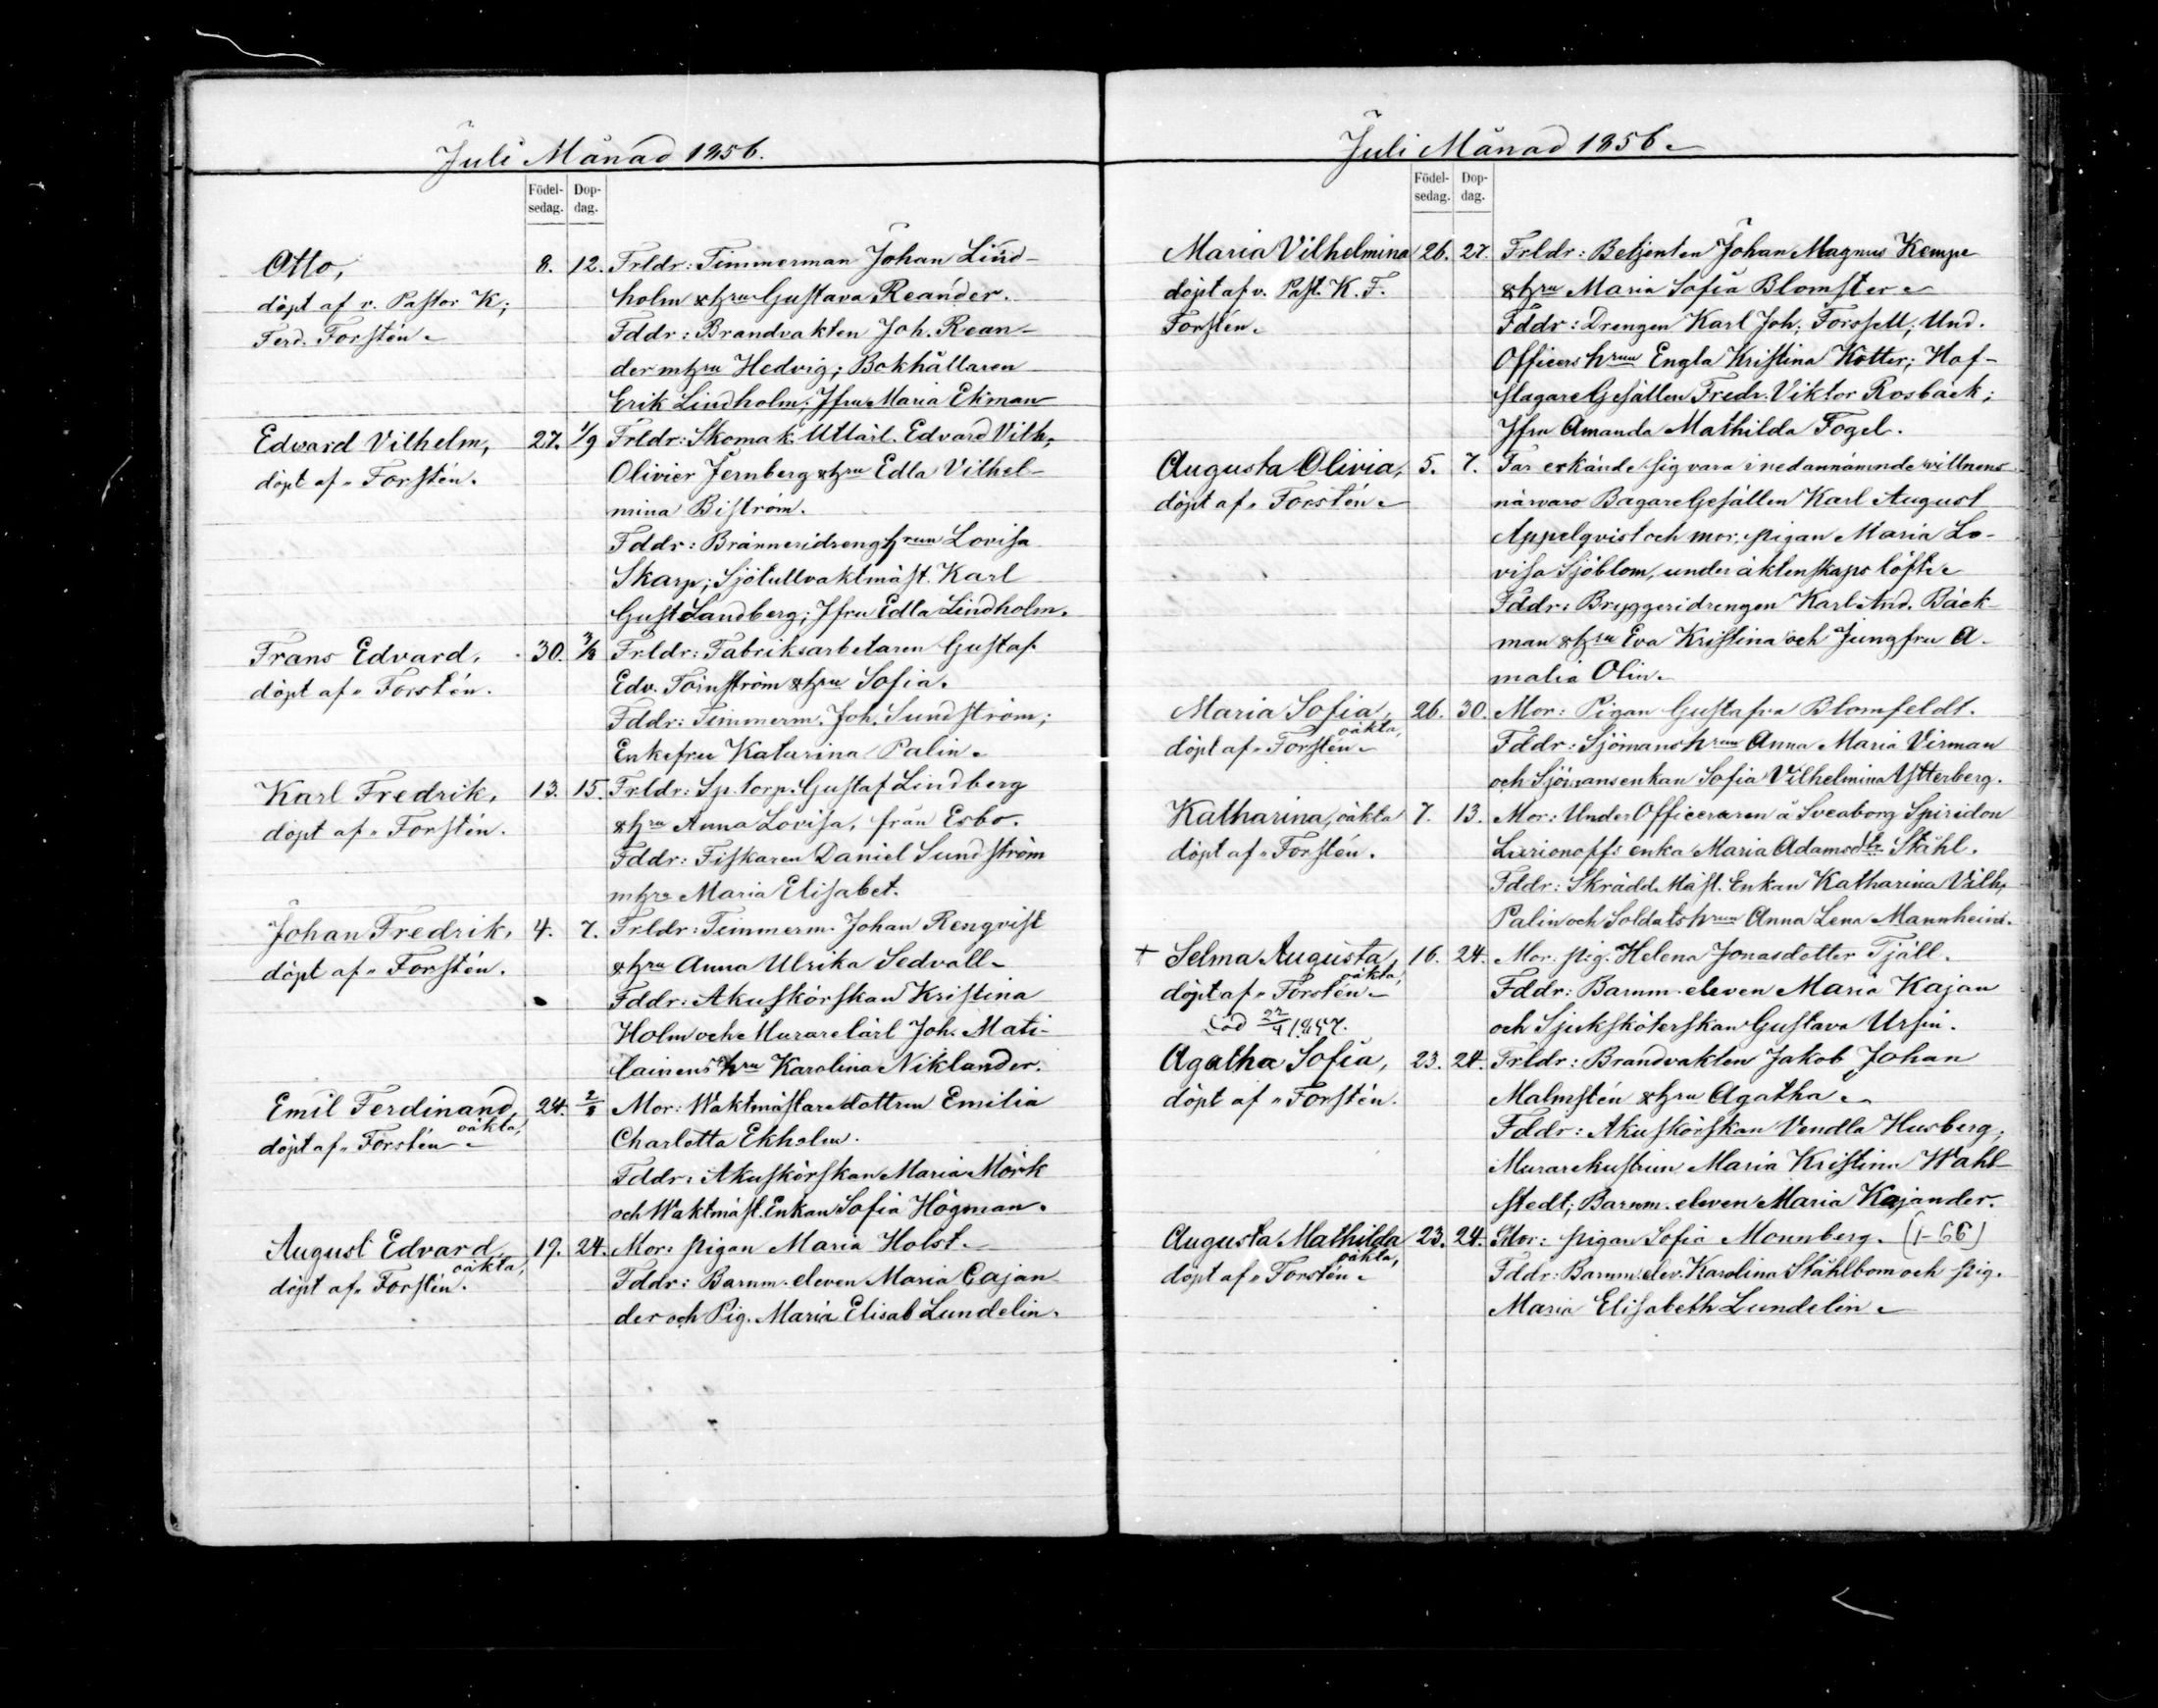 Juli Månad 1856.
Födel- Dop-
sedag. dag.
Otto, 8. 12. Frldr: Timmerman Johan Lind-
döpt af v. Pastor K; holm & hru Gustava Reander.
Ferd. Forstén. Fddr: Brandvakten Joh. Rean-
der m hru Hedvig; Bokhållaren
Erik Lindholm; Jfru Maria Ekman
Edvard Vilhelm, 27. 1/9 Frldr: Skomak. Utlärl. Edvard Vilh,
döpt af " Forstén. Olivier Jernberg & hru Edla Vilhel-
mina Biström.
Fddr: Brännеridreng hrun Lovisa
Skarp; Sjötullvaktmäst. Karl
Gust Sandberg; Jfru Edla Lindholm.
Frans Edvard, 30. 3/8 Frldr: Fabriksarbetaren Gustaf
döpt af " Forstén. Edv. Törnström & hru Sofia.
Fddr: Timmerm. Joh. Sundström;
Enkefru Katarina Palin.
Karl Fredrik, 13. 15. Frldr: Sp. torp. Gustaf Lindberg
döpt af " Forstén. & hru Anna Lovisa, från Esbo.
Fddr: Fiskaren Daniel Sundström
m hru Maria Elisabet.
Johan Fredrik, 4. 7. Frldr: Timmerm. Johan Renqvist
döpt af " Forstén. & hru Anna Ulrika Sedvall
Fddr: Akuskörskan Kristina
Holm och Murarelärl Joh. Mati-
lainens hru Karolina Niklander.
Emil Ferdinand, 24. 2/8 Mor: Waktmästaredottren Emilia
oäkta,
döpt af " Forstén Charlotta Ekholm.
Fddr: Akuskörskan Maria Mörk
och Waktmäst. Enkan Sofia Högman.
August Edvard, 19. 24. Mor: pigan Maria Holst.
oäkta,
döpt af " Forstén. Fddr: Barnm. eleven Maria Cajan
der och Pig. Maria Elisab Lundelin.
Juli Månad 1856.
Födel- Dop-
sedag. dag.
Maria Vilhelmina 26. 27. Frldr: Betjenten Johan Magnus Kempe
döpt af v. Past. K. F. & hru Maria Sofia Blomster
Forstén. Fddr: Drengen Karl Joh. Forssell; Und.
Officers hrun Engla Kristina Kotter; Hof-
slagare Gesällen Fredr. Viktor Rosbäck;
Jfru Amanda Mathilda Fogel.
Augusta Olivia, 5. 7. Far erkände sig vara i nedannämnde vittnens
döpt af " Forstén närvaro Bagare Gesällen Karl August
Appelqvist och mor, pigan Maria Lo-
visa Sjöblom, under äktenskaps löfte
Fddr: Bryggeridrengen Karl And. Bäck-
man & hru Eva Kristina och Jungfru A-
malia Olin.
Maria Sofia, 26. 30. Mor: Pigan Gustafva Blomfeldt.
oäkta,
döpt af " Forstén Fddr: Sjömans hrun Anna Maria Virman
och Sjömansenkan Sofia Vilhelmina Ytterberg.
Katharina, oäkta 7. 13. Mor: Under Officeraren å Sveaborg Spiridon
döpt af " Forstén. Larionoffs enka Maria Adamsdtr Ståhl.
Fddr: Skrädd. Mäst. Enkan Katharina Vilh,
Palin och Soldats hrun Anna Lena Mannheim.
+ Selma Augusta, 16. 24. Mor. pig. Helena Jonasdotter Tjäll.
oäkta,
döpt af " Forstén Fddr: Barnm. eleven Maria Kajan
Död 22/4 1857. och Sjuksköterskan Gustava Ursin.
Agatha Sofia, 23. 24. Frldr: Brandvakten Jakob Johan
döpt af " Forstén. Malmstén & hru Agatha
Fddr: Akuskörskan Vendla Husberg;
Murarehustrun Maria Kristina Wahl-
stedt; Barnm. eleven Maria Kajander.
Augusta Mathilda 23. 24. Mor: pigan Sofia Mounberg. (1-66)
oäkta,
döpt af " Forstén. Fddr: Barnm. elev. Karolina Ståhlbom och pig.
Maria Elisabeth Lundelin